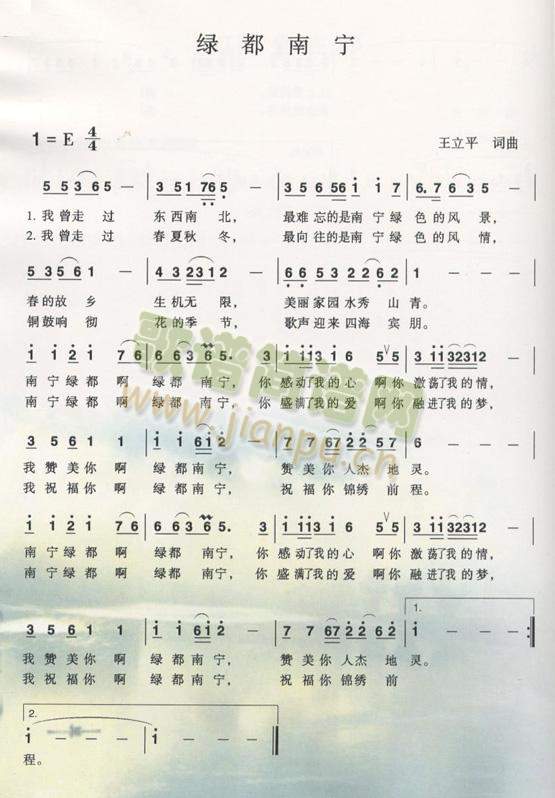 绿都南宁
1=E 4/4
王立平 词曲
5 5 3 6 5 — | 3 5 1 7 6 5 — | 3 3 5 6 5 6 1 1 1 7 | 6. 7 6 5 3 — |
1.我曾走过 东西南北, 最难忘的是南宁绿色的风景,
2.我曾走过 春夏秋冬, 最向往的是南宁绿色的风情,
5 3 5 6 1 — | 4 3 2 3 1 2 — | 6 6 5 3 2 2 6 2 | 1 — — — |
春的故乡 生机无限, 美丽家园水秀山青。
铜鼓响彻 花的季节, 歌声迎来四海宾朋。
歌谱简谱网
www.jianpu.cn
南宁绿都啊绿都南宁, 你感动了我的心啊你激荡了我的情,
南宁绿都啊绿都南宁, 你盛满了我的爱啊你融进了我的梦,
我赞美你啊绿都南宁, 赞美你人杰地灵。
我祝福你啊绿都南宁, 祝福你锦绣前程。
南宁绿都啊绿都南宁, 你感动了我的心啊你激荡了我的情,
南宁绿都啊绿都南宁, 你盛满了我的爱啊你融进了我的梦,
1.
我赞美你啊绿都南宁, 赞美你人杰地灵。
我祝福你啊绿都南宁, 祝福你锦绣前
2.
1 — — — | 1 — — — |
程。